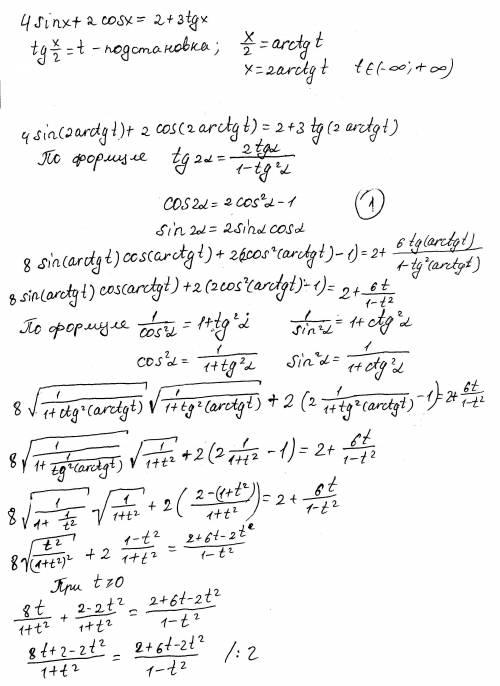 4 sinx + 2 cosx = 2 + 3 tgx
tg x/2 = t - подстановка; x/2 = arctg t
x = 2arctg t t ∈ (-∞; +∞)
4 sin(2arctg t) + 2 cos(2 arctg t) = 2 + 3 tg (2 arctg t)
По формуле tg 2α = 2tgα/(1-tg²α)
cos2α = 2cos²α - 1
①
sin 2α = 2sinα cosα
8 sin(arctg t) cos(arctg t) + 2(2cos²(arctg t) - 1) = 2 + 6 tg(arctg t)/(1-tg²(arctg t))
8 sin(arctg t) cos(arctg t) + 2 (2cos²(arctg t) - 1) = 2 + 6t/(1-t²)
По формуле 1/cos²α = 1+tg²α; 1/sin²α = 1+ctg²α
cos²α = 1/(1+tg²α) sin²α = 1/(1+ctg²α)
8 √(1/(1+ctg²(arctg t))) √(1/(1+tg²(arctg t))) + 2 (2 1/(1+tg²(arctg t)) - 1) = 2 + 6t/(1-t²)
8 √(1/(1+1/tg²(arctg t))) √(1/(1+t²)) + 2 (2 1/(1+t²) - 1) = 2 + 6t/(1-t²)
8 √(1/(1+1/t²)) √(1/(1+t²)) + 2 ((2-(1+t²))/(1+t²)) = 2 + 6t/(1-t²)
8 √(t²/(1+t²)²) + 2 (1-t²)/(1+t²) = (2+6t-2t²)/(1-t²)
При t≥0
8t/(1+t²) + (2-2t²)/(1+t²) = (2+6t-2t²)/(1-t²)
(8t+2-2t²)/(1+t²) = (2+6t-2t²)/(1-t²) /: 2